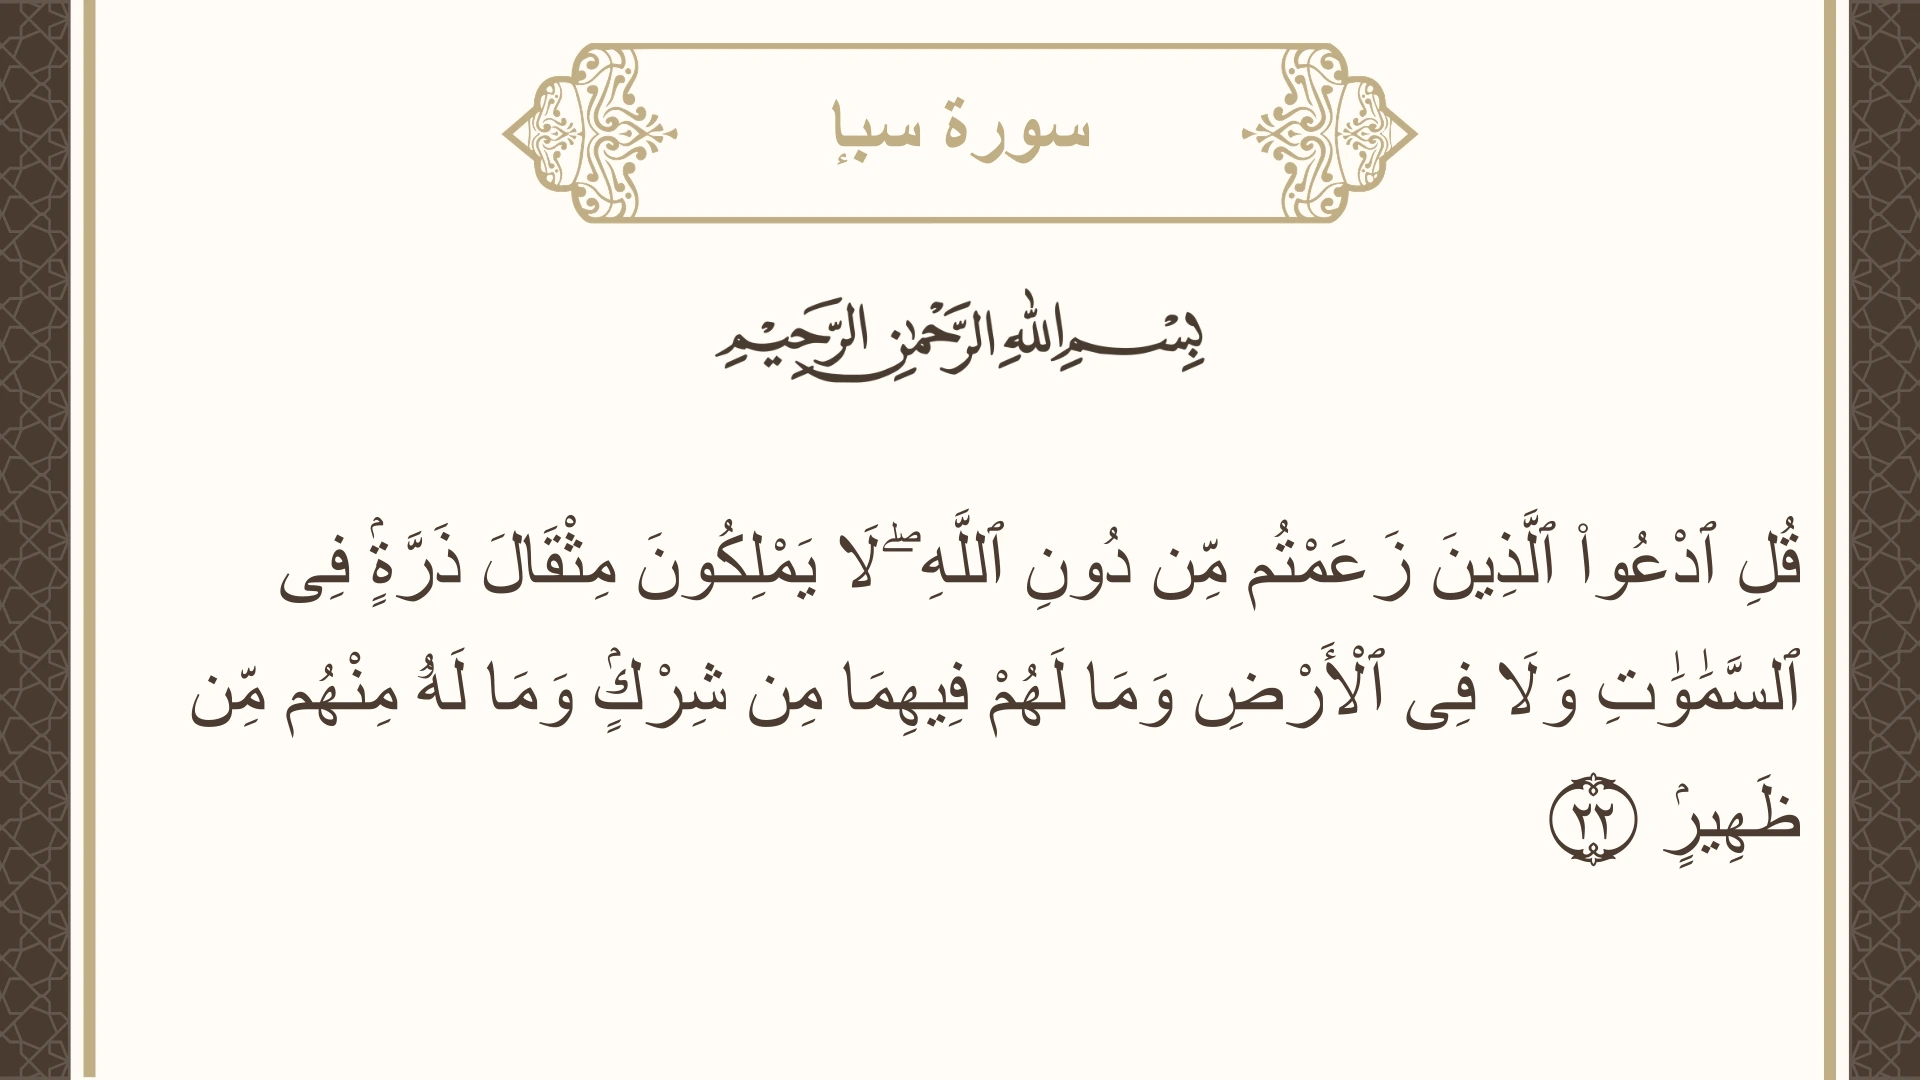 سورة سبإ
بِسْمِ اللهِ الرَّحْمٰنِ الرَّحِيْمِ
قُلِ ٱدْعُوا۟ ٱلَّذِينَ زَعَمْتُم مِّن دُونِ ٱللَّهِ ۖ لَا يَمْلِكُونَ مِثْقَالَ ذَرَّةٍۢ فِى
ٱلسَّمَٰوَٰتِ وَلَا فِى ٱلْأَرْضِ وَمَا لَهُمْ فِيهِمَا مِن شِرْكٍۢ وَمَا لَهُۥ مِنْهُم مِّن
ظَهِيرٍۢ ٢٢